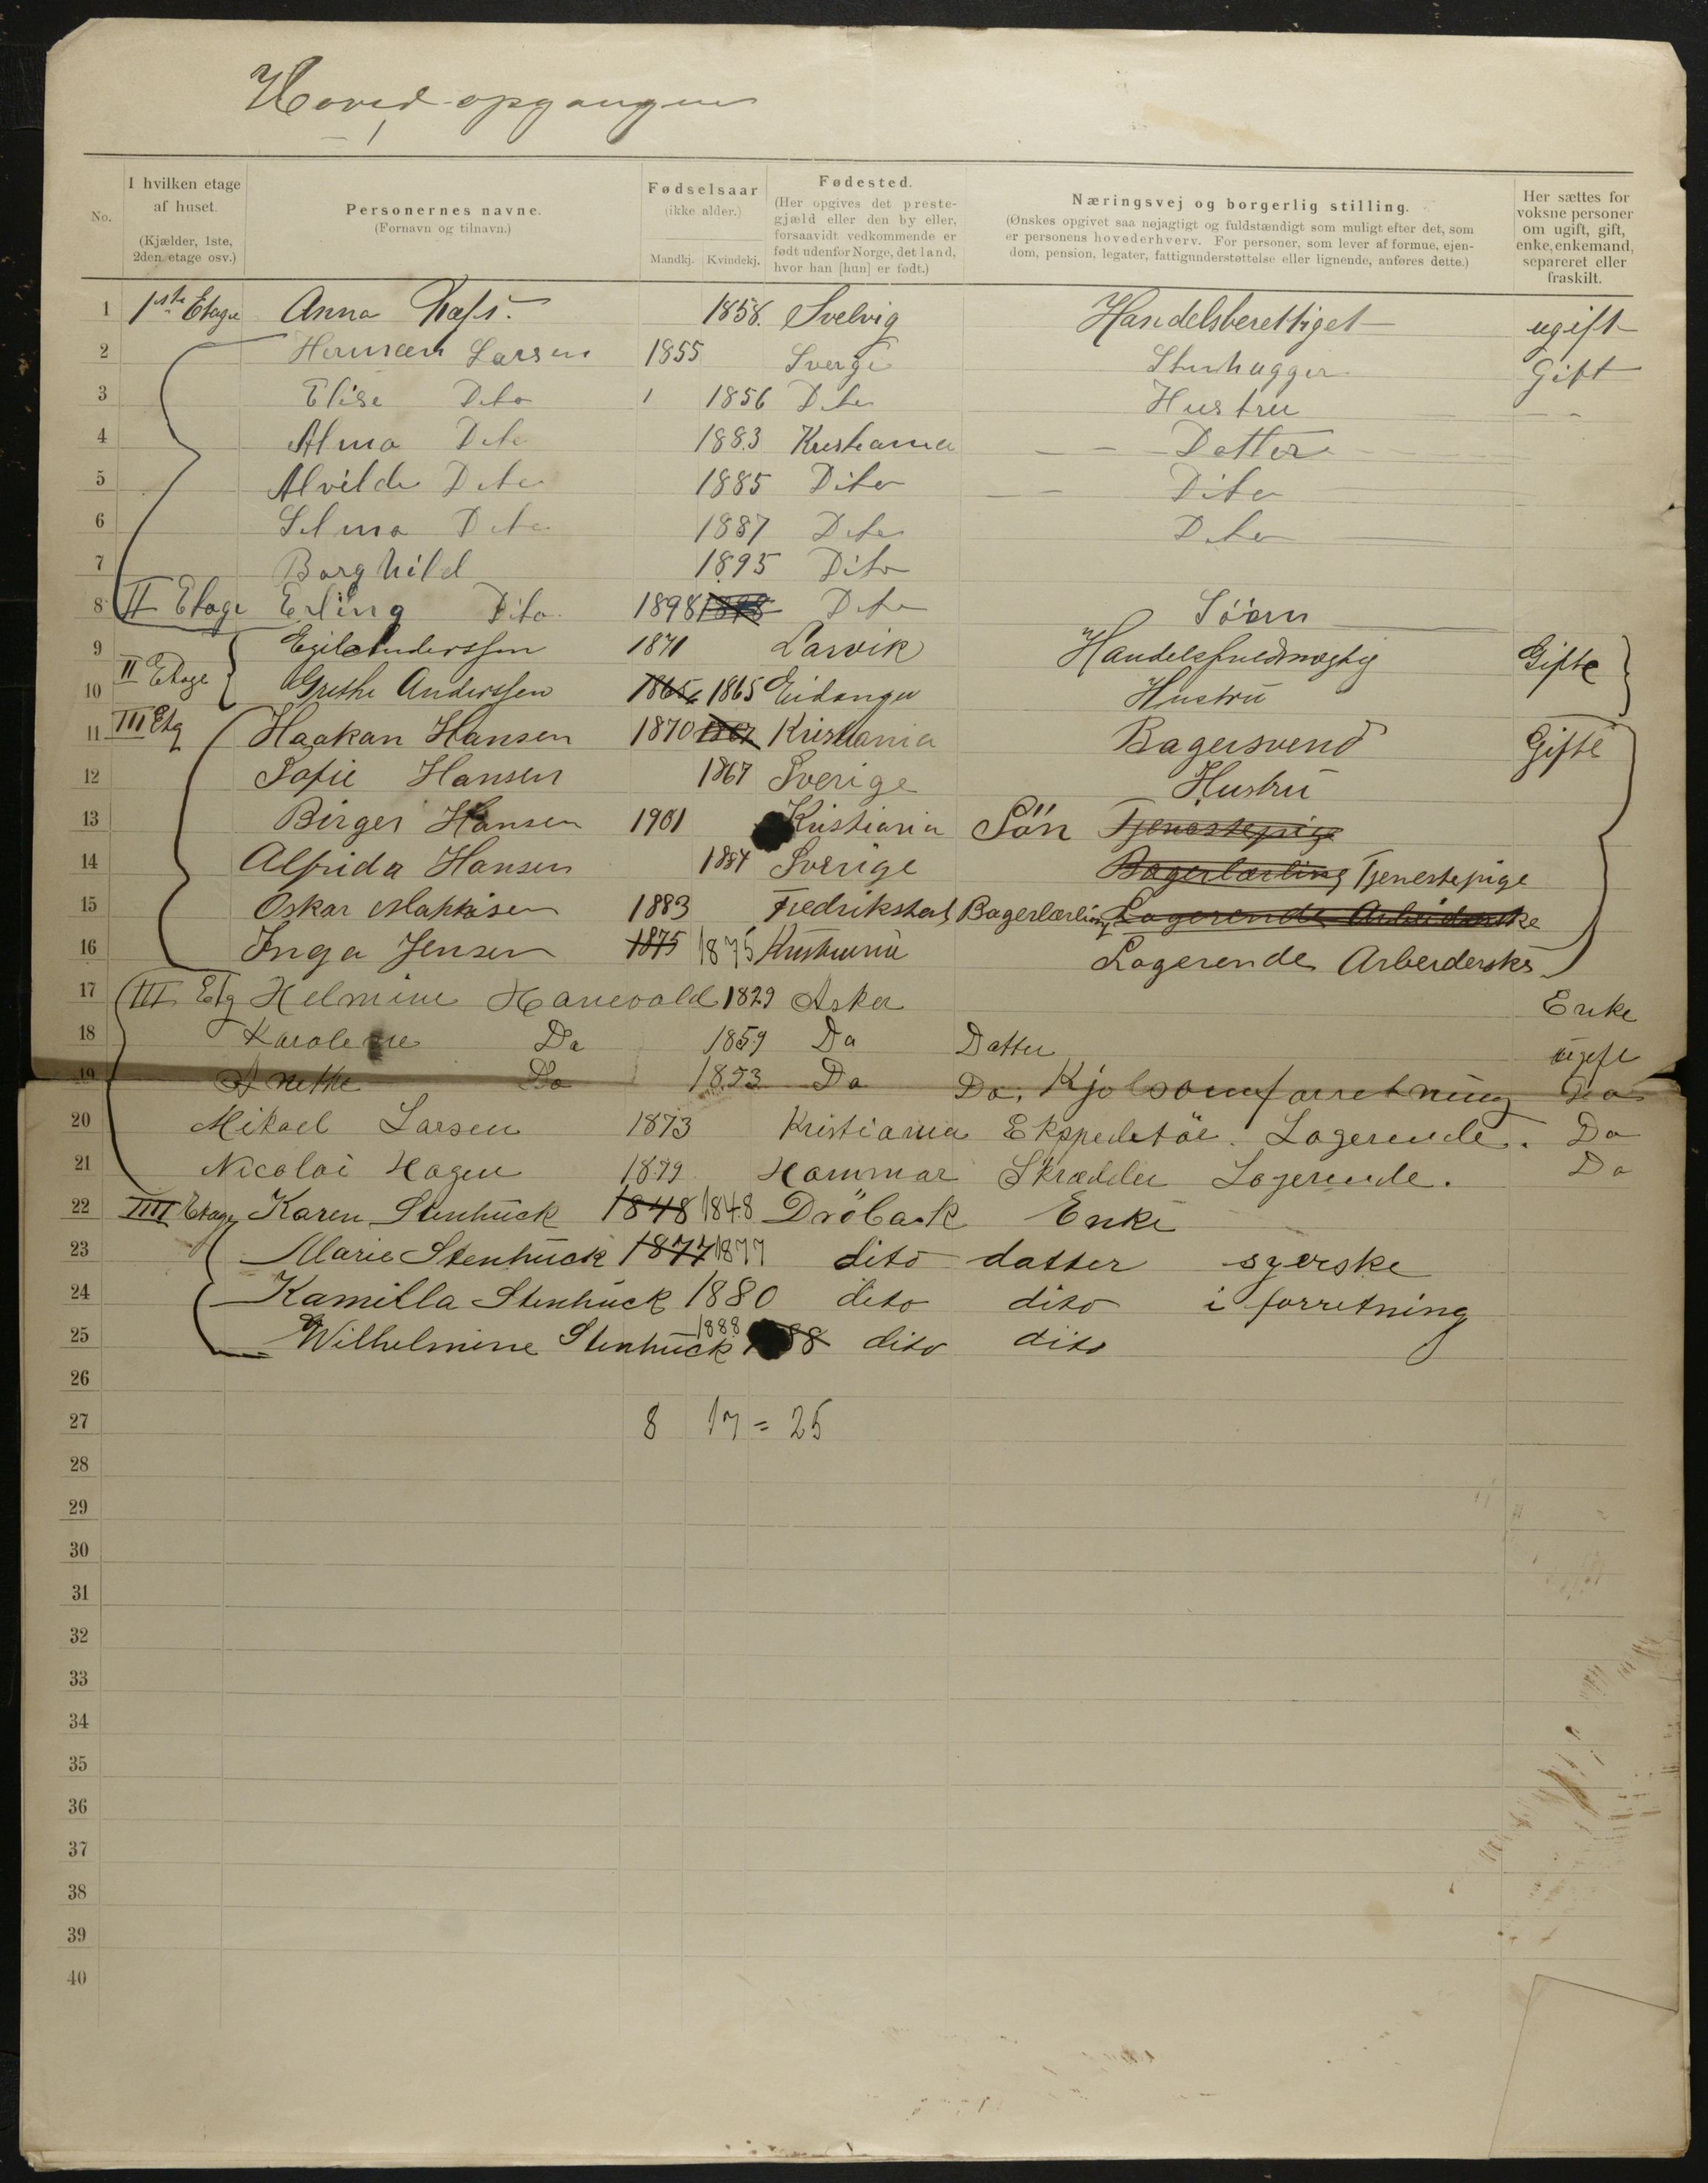 Hovedopgangen
No.
I hvilken etage af huset. (Kjælder, 1ste, 2den etage osv.)
Personernes navne. (Fornavn og tilnavn.)
Fødselsaar (ikke alder.) Mandkj. Kvindekj.
Fødested. (Her opgives det prestegjæld eller den by eller, forsaavidt vedkommende er født udenfor Norge, det land, hvor han [hun] er født.)
Næringsvej og borgerlig stilling. (Ønskes opgivet saa nøjagtigt og fuldstændigt som muligt efter det, som er personens hovederhverv. For personer, som lever af formue, ejendom, pension, legater, fattigunderstøttelse eller lignende, anføres dette.)
Her sættes for voksne personer om ugift, gift, enke, enkemand, separeret eller fraskilt.
1 1ste Etage Anna 1858. Svelvig Handelsberettiget ugift
2 Herman Larsen 1855 Sverge Stenhugger Gift
3 Elise Dito 1856 Dito Hustru
4 Alma Dito 1883 Kristiania Datter
5 Alvilde Dito 1885 Dito Dito
6 Selma Dito 1887 Dito Dito
7 Borghild 1895 Dito
8 II Etage Erling Dito 1898 1898 Dito Söon
9 Egil Anderssen 1871 Larvik Handelsfuldmægtig Gifte
10 II Etage Grethe Anderssen 1865 1865 Eidanger Hustru
11 III Etg Haakan Hansen 1870 1867 Kristiania Bagersvend Gifte
12 Sofie Hansen 1867 Sverige Hustru
13 Birger Hansen 1901 Kristiania Sön Tjenestepige
14 Alfrida Hansen 1884 Sverige Bagerlærling Tjenestepige
15 Oskar 1883 Fredrikstad Bagerlærling Logerende Arbeiderske
16 Inga Jensen 1875 1875 Kristiania Logerende Arbeiderske
17 III Etg Helmine Hanevold 1829 Asker Enke
18 Karoline Do 1859 Do Datter ugift
19 Anethe Do 1853 Do Do. Kjolsömforretning Do
20 Mikael Larsen 1873 Kristiania Ekspeditör. Logerende. Do
21 Nicolai Hagen 1879 Hammar Skrædder Logerende. Do
22 IIII Etage Karen Stenhück 1848 1848 Dröback Enke
23 Marie Stenhück 1877 1877 dito datter syerske
24 Kamilla Stenhück 1880 dito dito i forretning
25 Wilhelmine Stenhück 1888 88 dito dito
26
27 8 17 = 25
28
29
30
31
32
33
34
35
36
37
38
39
40